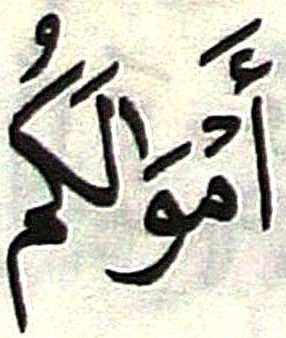 أَمْوَٰلَكُم